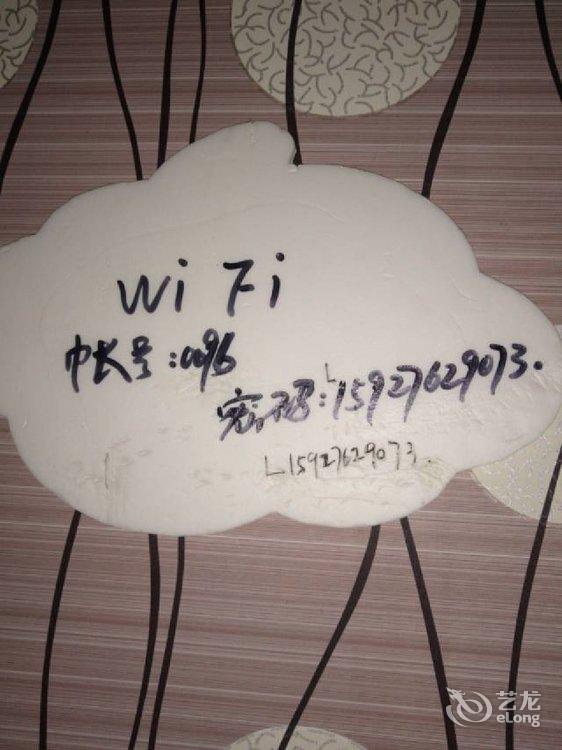 WiFi
帐号:0096
密码:L15927629073.
L15927629073.
艺龙
eLong